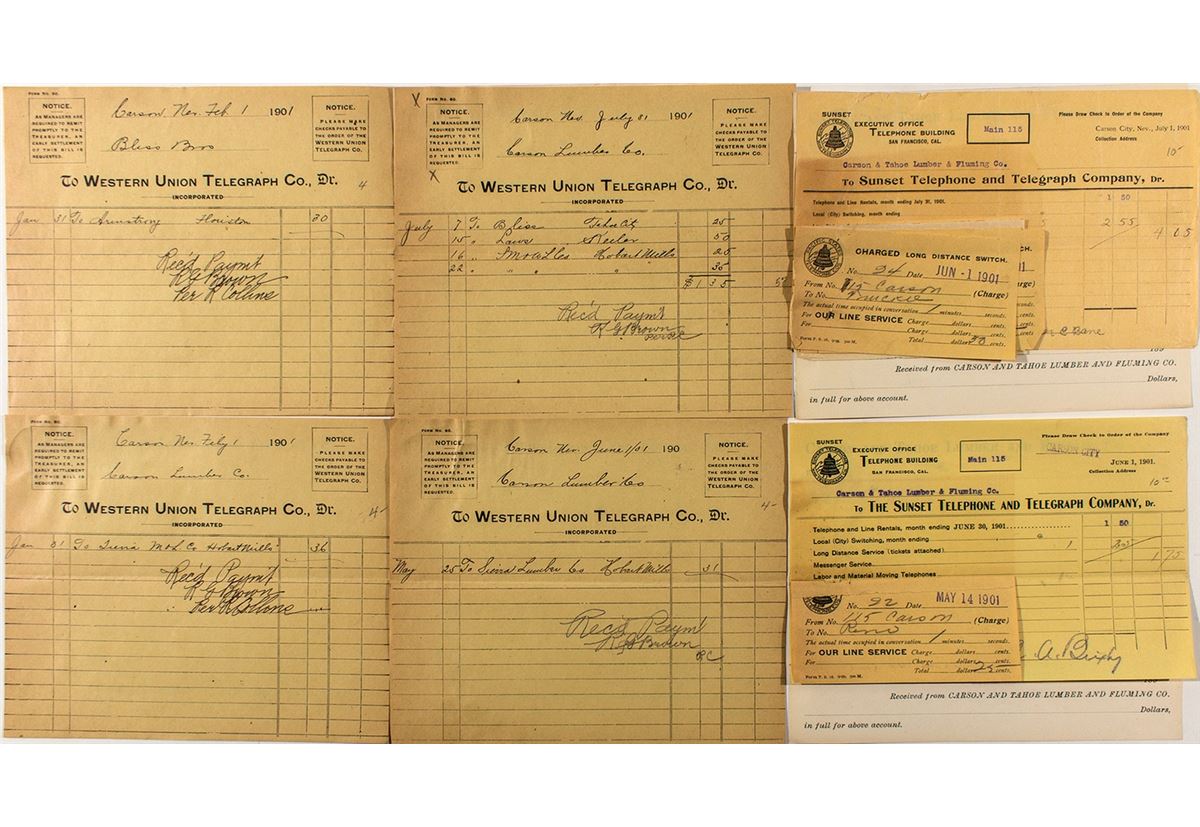 Form No. 50.
NOTICE.
As Managers are
required to remit
promptly to the
Treasurer, an
early settlement
of this bill is
requested.
Carson Nev. Feb 1 1901
Bliss Bros
NOTICE.
Please make
checks payable to
the order of the
Western Union
Telegraph Co.
To Western Union Telegraph Co., Dr.
INCORPORATED
4
Jan 31 To Armstrong Houston 30
Rec'd Paym't
R G Brown
Per R Collins
Form No. 50.
NOTICE.
As Managers are
required to remit
promptly to the
Treasurer, an
early settlement
of this bill is
requested.
X
X
Carson Nev July 31 1901
Carson Lumber Co.
NOTICE.
Please make
checks payable
to the order of
the Western
Union
Telegraph Co.
To Western Union Telegraph Co., Dr.
INCORPORATED
July 7 To Bliss Tahoe City 25
15 " Laws Keeler 50
16 " Hobart Mills 25
22 " " " 35
$ 1 35
Rec'd Paym't
R G Brown
SUNSET
Executive Office
Telephone Building
San Francisco, Cal.
Main 115
Please Draw Check to Order of the Company
Carson City, Nev., July 1, 1901
Collection Address
10
Carson & Tahoe Lumber & Fluming Co.
To Sunset Telephone and Telegraph Company, Dr.
Telephone and Line Rentals, month ending July 31, 1901. 1 50
Local (City) Switching, month ending
2 55
4 05
CHARGED LONG DISTANCE SWITCH.
No. 24 Date JUN -1 1901
From No. 115 Carson (Charge)
To No. Truckee
The actual time occupied in conversation 1 minutes seconds.
For OUR LINE SERVICE Charge dollars cents.
For Charge dollars cents.
Total dollars 30 cents.
Received from CARSON AND TAHOE LUMBER AND FLUMING CO.
Dollars,
in full for above account.
Form No. 50.
NOTICE.
As Managers are
required to remit
promptly to the
Treasurer, an
early settlement
of this bill is
requested.
Carson Nev. Feby 1 1901
Carson Lumber Co.
NOTICE.
Please make
checks payable
to the order of
the Western
Union
Telegraph Co.
To Western Union Telegraph Co., Dr.
INCORPORATED
4-
Jan 31 To Hobart Mills 36
Rec'd Paym't
R G Brown
Per R Collins
Form No. 50.
NOTICE.
As Managers are
required to remit
promptly to the
Treasurer, an
early settlement
of this bill is
requested.
Carson Nev. June 1/01 190
Carson Lumber Co
NOTICE.
Please make
checks payable
to the order of
the Western
Union
Telegraph Co.
To Western Union Telegraph Co., Dr.
INCORPORATED
4-
May 25 To Sierra Lumber Co Hobart Mills 31
Rec'd Paym't
R G Brown
R C
SUNSET
Executive Office
Telephone Building
San Francisco, Cal.
Main 115
Please Draw Check to Order of the Company
CARSON CITY
June 1, 1901.
Collection Address
Carson & Tahoe Lumber & Fluming Co.
To The Sunset Telephone and Telegraph Company, Dr.
Telephone and Line Rentals, month ending JUNE 30, 1901. 1 50
Local (City) Switching, month ending
Long Distance Service (tickets attached) 1
1 75
Messenger Service
Labor and Material Moving Telephones
No. 92 Date MAY 14 1901
From No. 115 Carson (Charge)
To No. Reno
The actual time occupied in conversation 1 minutes seconds.
For OUR LINE SERVICE Charge dollars cents.
For Charge dollars cents.
Total dollars 25 cents.
Received from CARSON AND TAHOE LUMBER AND FLUMING CO.
Dollars,
in full for above account.